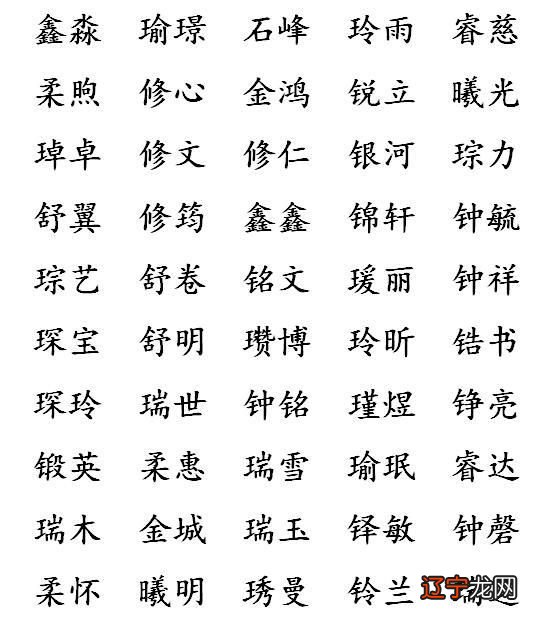 鑫淼 瑜璟 石峰 玲雨 睿慈
柔煦 修心 金鸿 锐立 曦光
琸卓 修文 修仁 银河 琮力
舒翼 修筠 鑫鑫 锦轩 钟毓
琮艺 舒卷 铭文 瑗丽 钟祥
琛宝 舒明 瓒博 玲昕 锆书
琛玲 瑞世 钟铭 瑾煜 铮亮
锻英 柔惠 瑞雪 瑜珉 睿达
瑞木 金城 瑞玉 铎敏 钟磬
柔怀 曦明 琇曼 铃兰
辽宁龙网